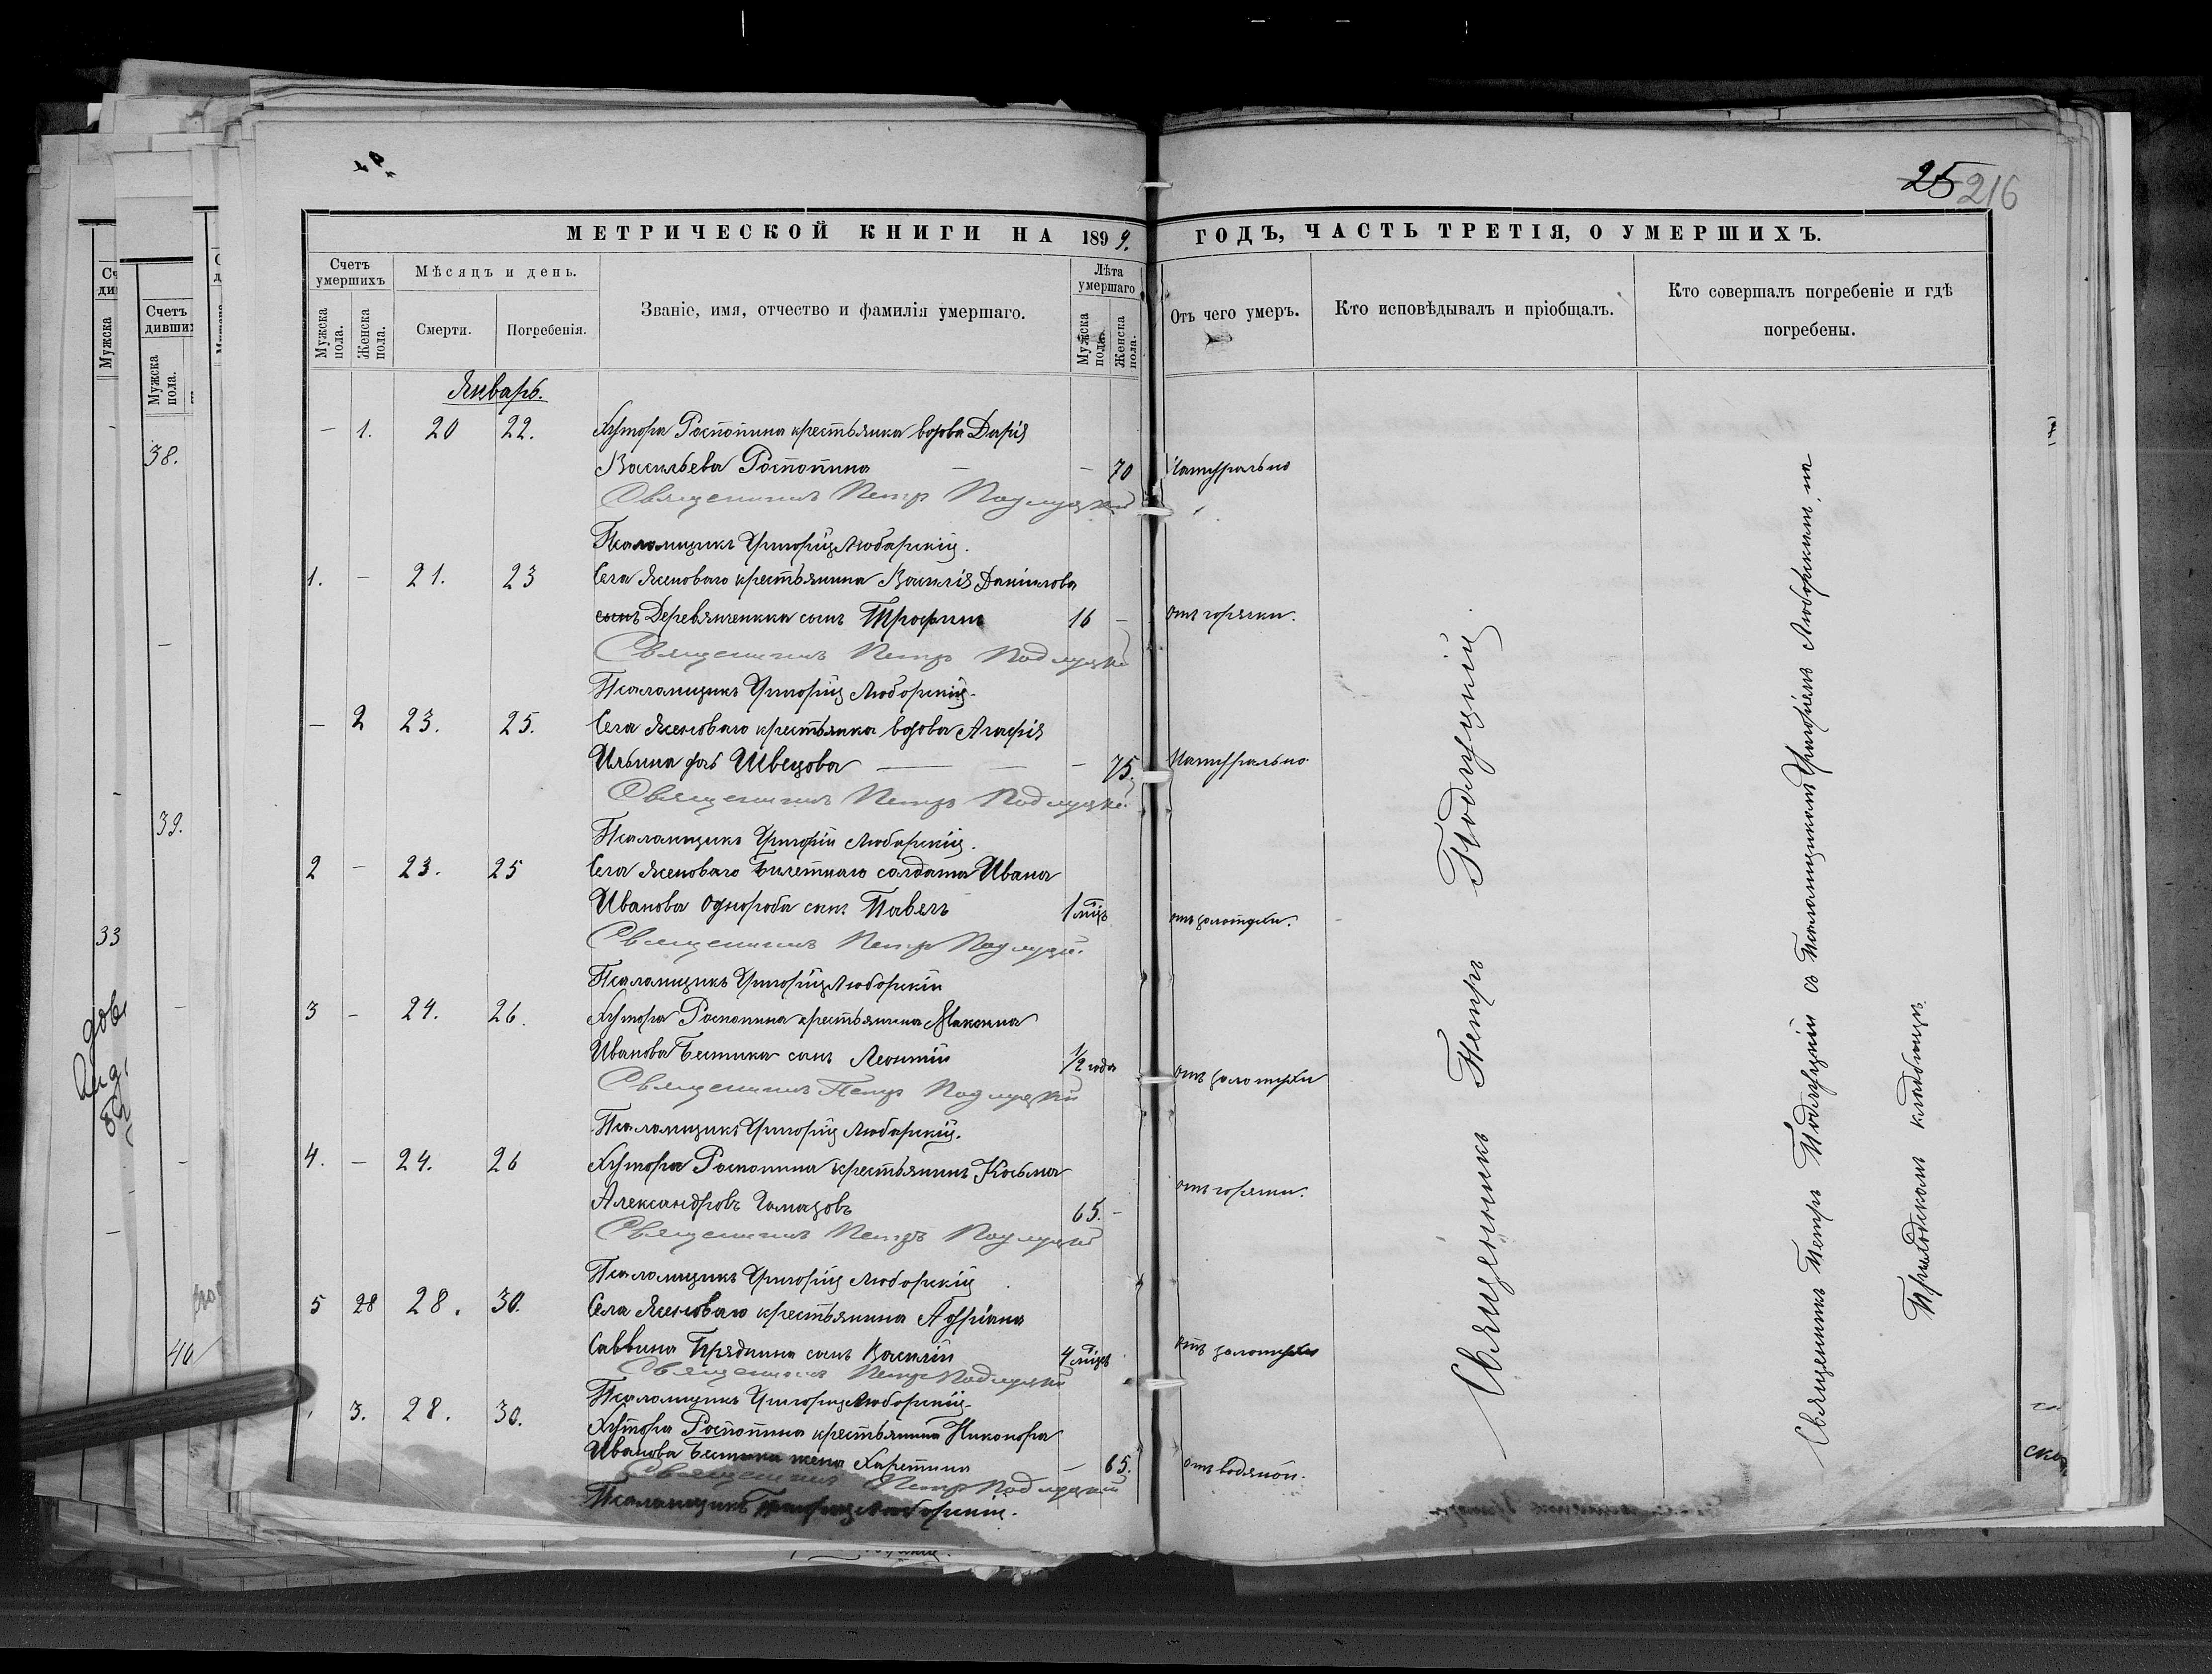 25 216
МЕТРИЧЕСКОЙ КНИГИ НА 1899. ГОДЪ, ЧАСТЬ ТРЕТІЯ, О УМЕРШИХЪ.
Счетъ умершихъ
Мѣсяцъ и день.
Званіе, имя, отчество и фамилія умершаго.
Лѣта умершаго
Отъ чего умеръ.
Кто исповѣдывалъ и пріобщалъ.
Кто совершалъ погребеніе и гдѣ
погребены.
Мужска пола.
Женска пола.
Смерти.
Погребенія.
Мужска пола.
Женска пола.
Январь.
— 1. 20 22. Хутора Роспопина крестьянка вдова Дарія
Васильева Роспопина — — 70 Натурально
Священникъ Петръ Подлуцкій
Псаломщикъ Григорій Любарскій.
1. — 21. 23 Села Ясеноваго крестьянина Василія Данiилова
сынъ Деревянченка сынъ Трофимъ 16 — отъ горячки.
Священникъ Петръ Подлуцкій
Псаломщикъ Григорій Любарскій.
— 2 23. 25. Села Ясеноваго крестьянка вдова Агафія
Ильина Швецова — — — 75. Натурально
Священникъ Петръ Подлуцкій
Псаломщикъ Григорій Любарскій.
2 — 23. 25 Села Ясеноваго билетнаго солдата Ивана
Иванова Однороба сынъ Павелъ 1 мцъ отъ золотухи.
Священникъ Петръ Подлуцкій.
Псаломщикъ Григорій Любарскій
3 — 24. 26. Хутора Роспопина крестьянина Максима
Иванова сынъ Леонтій 1/2 года отъ золотухи
Священникъ Петръ Подлуцкій
Псаломщикъ Григорій Любарскій.
4. — 24. 26 Хутора Роспопина крестьянинъ Косьма
Александровъ 65. — отъ горячки.
Священникъ Петръ Подлуцкій
Псаломщикъ Григорій Любарскій
5 28 28. 30. Села Ясеноваго крестьянина Адріана
Саввина сынъ Василій 4 мцъ отъ золотухи
Священникъ Петръ Подлуцкій
Псаломщикъ Григорій Любарскій.
3. 28. 30. Хутора Роспопина крестьянина Никонора
Иванова жена Харитина — 65. отъ водяной.
Священникъ Петръ Подлуцкій
Псаломщикъ Григорій Любарскій.
Священникъ Петръ Подлуцкій.
Священникъ Петръ Подлуцкій съ Псаломщикомъ Григоріемъ Любарскимъ, на
Приходскомъ кладбищѣ.
Счетъ
Мужска
Мужска пола.
38.
39.
33
40